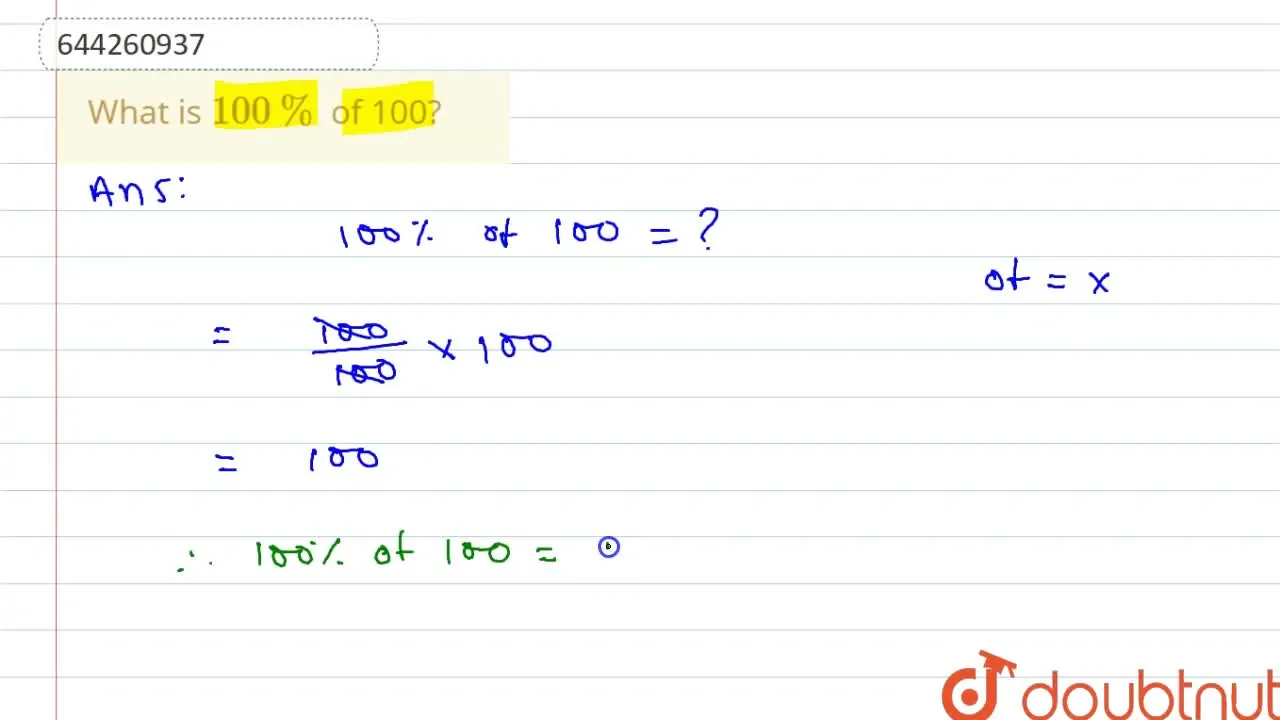 644260937
What is 100 % of 100?
Ans:
100% of 100 = ?
of = x
= 100/100 x 100
= 100
∴ 100% of 100 =
doubtnut